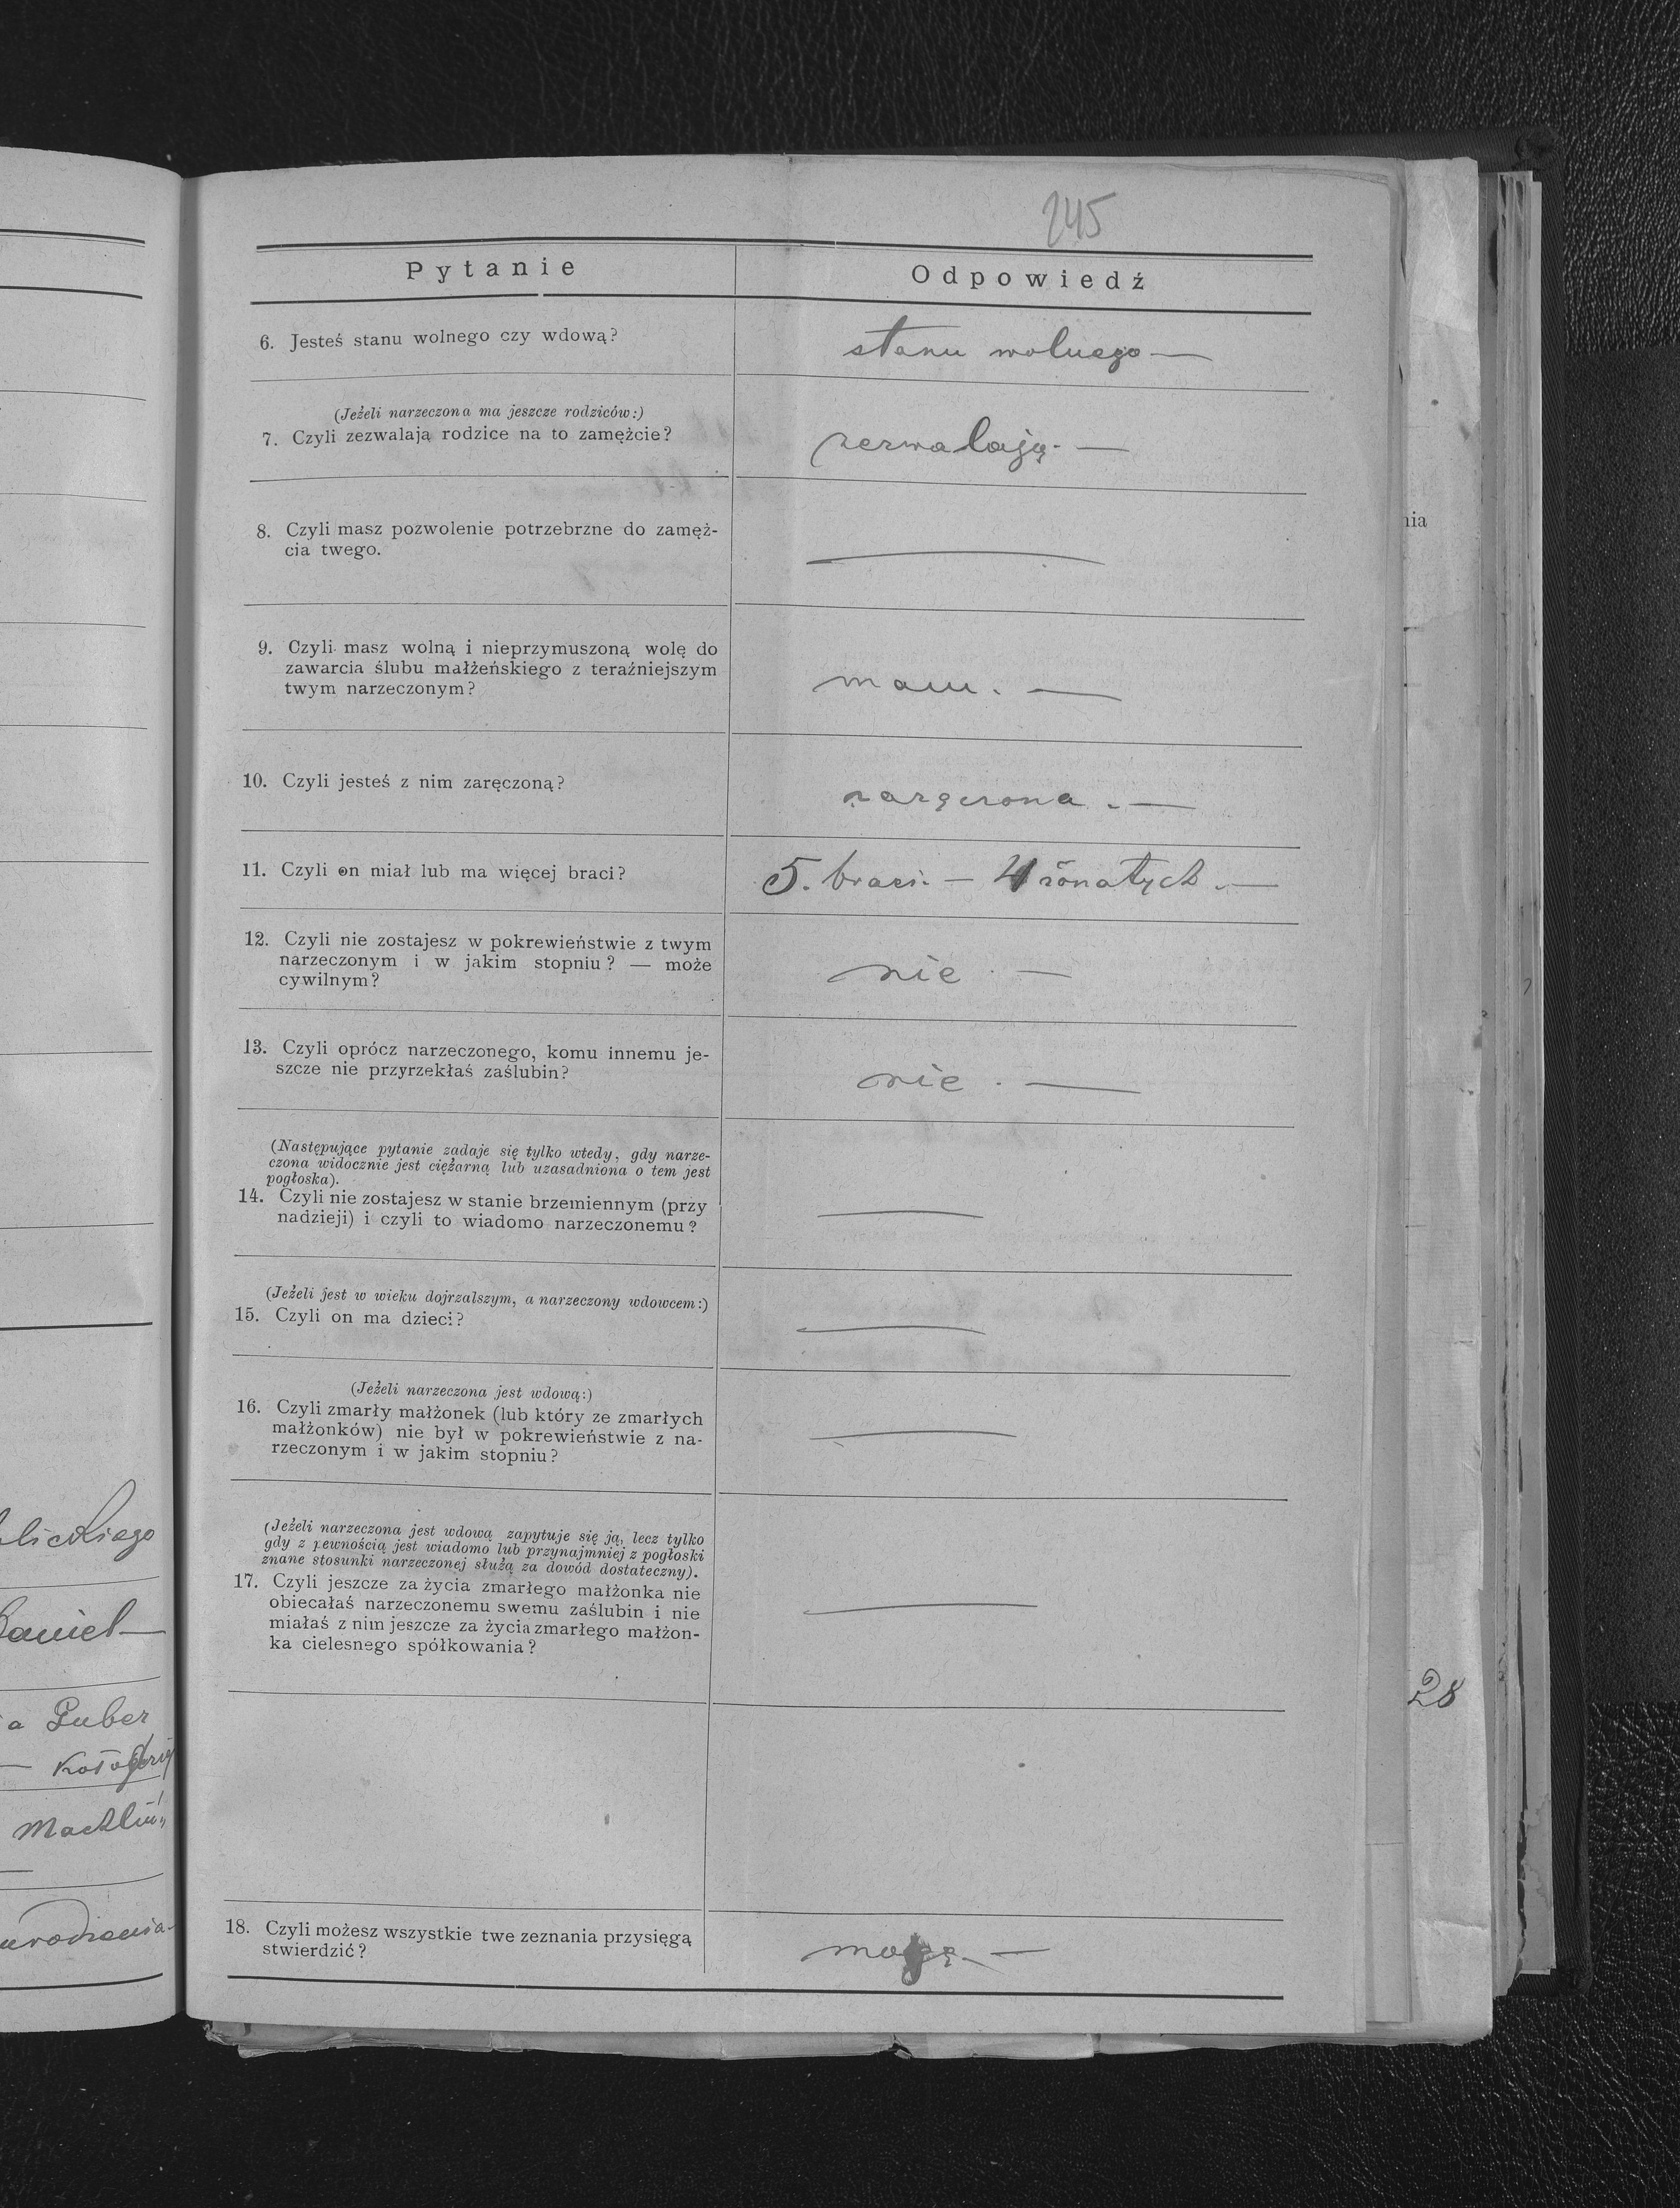 245
Pytanie
Odpowiedź
6. Jesteś stanu wolnego czy wdową?
stanu wolnego —
(Jeżeli narzeczona ma jeszcze rodziców:)
7. Czyli zezwalają rodzice na to zamężcie?
zezwalają. —
8. Czyli masz pozwolenie potrzebrzne do zamęż-
cia twego.
—
9. Czyli masz wolną i nieprzymuszoną wolę do
zawarcia ślubu małżeńskiego z teraźniejszym
twym narzeczonym?
mam. —
10. Czyli jesteś z nim zaręczoną?
zaręczona. —
11. Czyli on miał lub ma więcej braci?
5. braci. — 4 żonatych. —
12. Czyli nie zostajesz w pokrewieństwie z twym
narzeczonym i w jakim stopniu? — może
cywilnym?
nie. —
13. Czyli oprócz narzeczonego, komu innemu je-
szcze nie przyrzekłaś zaślubin?
nie. —
(Następujące pytanie zadaje się tylko wtedy, gdy narze-
czona widocznie jest ciężarną lub uzasadniona o tem jest
pogłoska).
14. Czyli nie zostajesz w stanie brzemiennym (przy
nadzieji) i czyli to wiadomo narzeczonemu?
—
(Jeżeli jest w wieku dojrzalszym, a narzeczony wdowcem:)
15. Czyli on ma dzieci?
—
(Jeżeli narzeczona jest wdową:)
16. Czyli zmarły małżonek (lub który ze zmarłych
małżonków) nie był w pokrewieństwie z na-
rzeczonym i w jakim stopniu?
—
(Jeżeli narzeczona jest wdową zapytuje się ją, lecz tylko
gdy z pewnością jest wiadomo lub przynajmniej z pogłoski
znane stosunki narzeczonej służą za dowód dostateczny).
17. Czyli jeszcze za życia zmarłego małżonka nie
obiecałaś narzeczonemu swemu zaślubin i nie
miałaś z nim jeszcze za życia zmarłego małżon-
ka cielesnego spółkowania?
—
18. Czyli możesz wszystkie twe zeznania przysięgą
stwierdzić?
mogę —
lickiego
Daniel —
a Puber
Machliń
urodzenia
nia
28